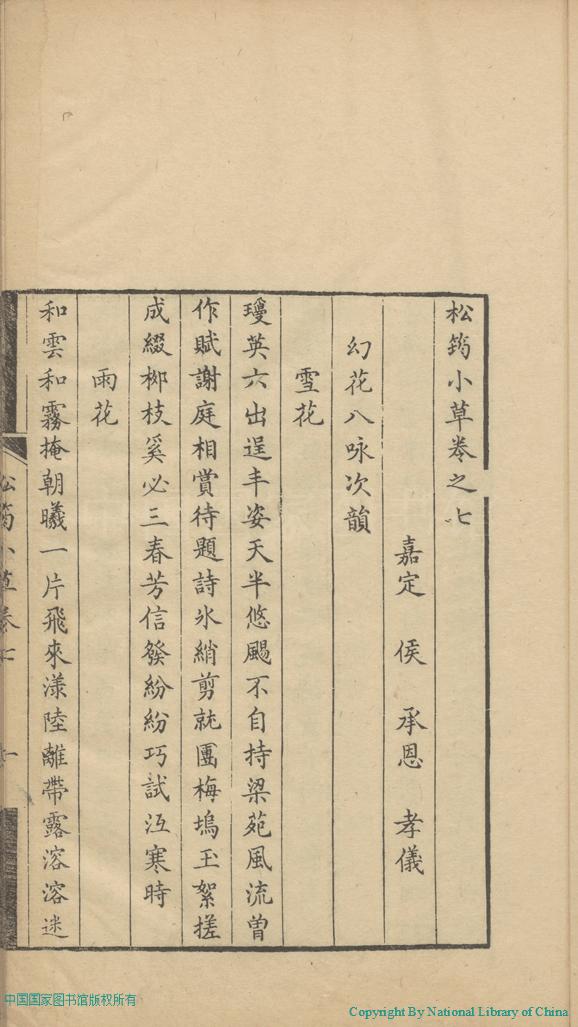 松筠小草卷之七
嘉定 侯 承恩 孝儀
幻花八咏次韻
雪花
瓊英六出逞丰姿天半悠颺不自持梁苑風流曾
作賦謝庭相賞待題詩氷綃剪就團梅塢玉絮搓
成綴柳枝奚必三春芳信發紛紛巧試沍寒時
雨花
和雲和霧掩朝曦一片飛來漾陸離帶露溶溶迷
松筠小草卷七
一
中国国家图书馆版权所有
Copyright By National Library of China